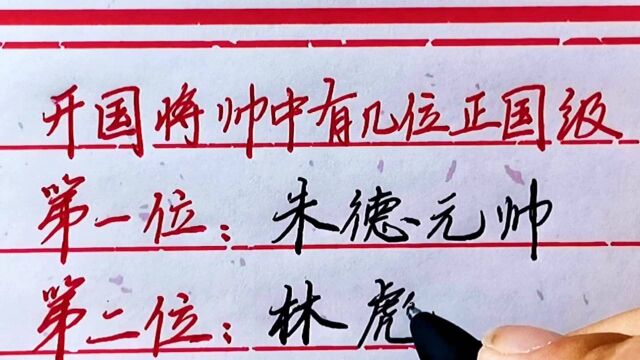 开国将帅中有几位正国级
第一位：朱德元帅
第二位：林彪